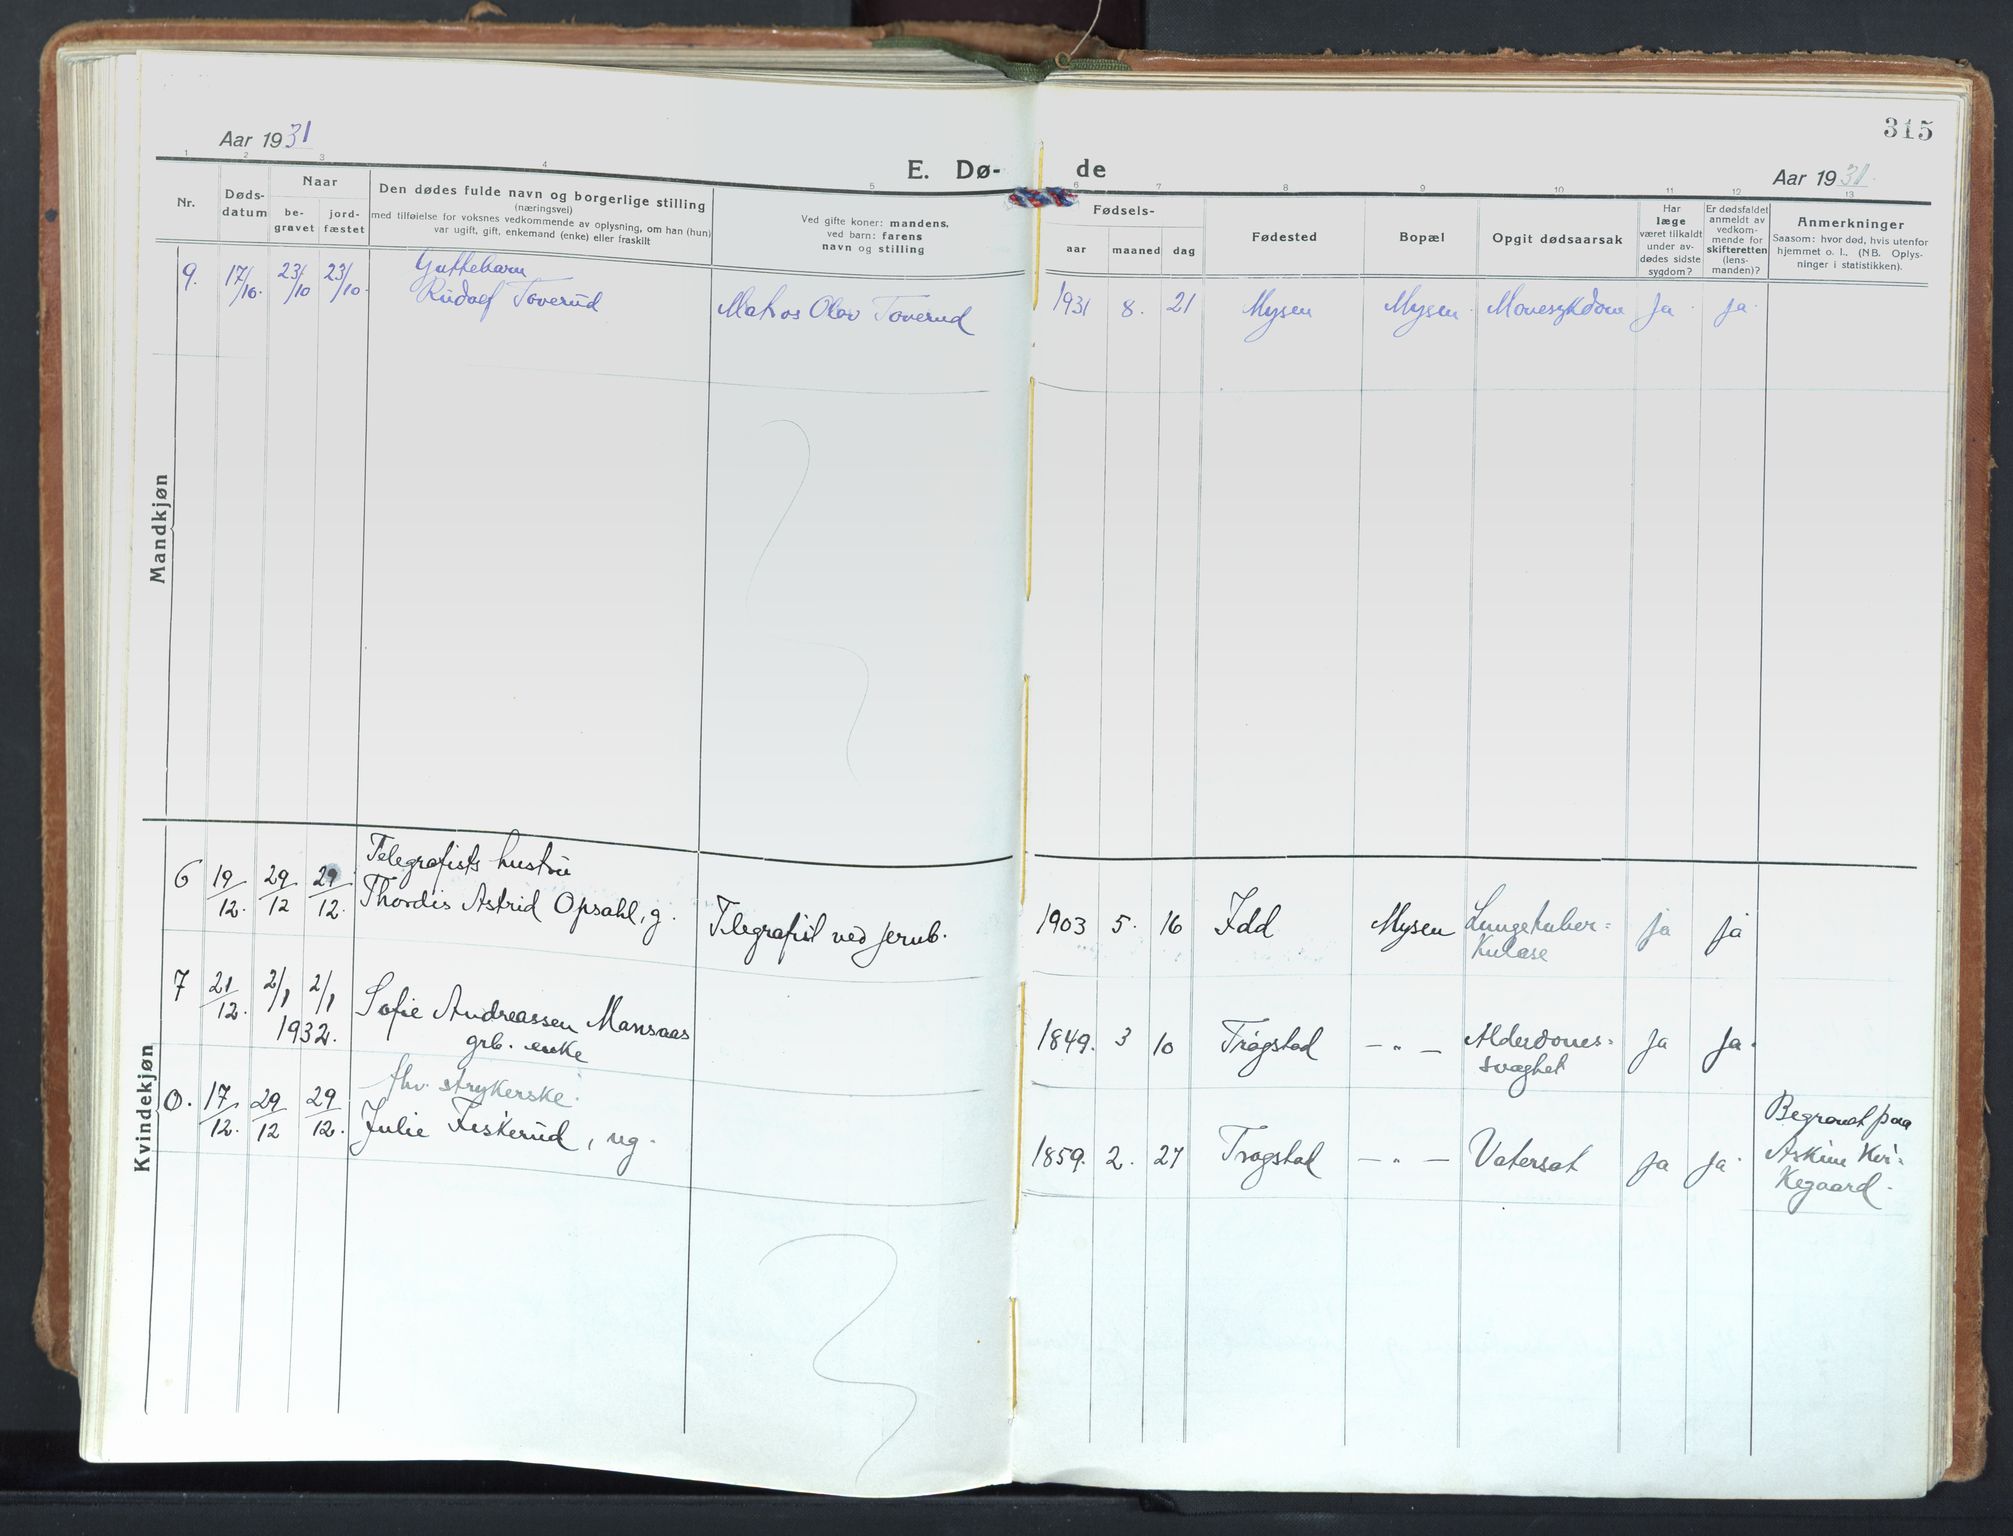 315
Aar 1931
E. Dø-
de
Aar 1931.
1 2 3 4 5 6 7 8 9 10 11 12 13
Nr.
Døds-
datum
Naar
be-
gravet
jord-
fæstet
Den dødes fulde navn og borgerlige stilling
(næringsvei)
med tilføielse for voksnes vedkommende av oplysning, om han (hun)
var ugift, gift, enkemand (enke) eller fraskilt
Ved gifte koner: mandens,
ved barn: farens
navn og stilling
Fødsels-
aar maaned dag
Fødested
Bopæl
Opgit dødsaarsak
Har
læge
været tilkaldt
under av-
dødes sidste
sygdom?
Er dødsfaldet
anmeldt av
vedkom-
mende for
skifteretten
(lens-
manden)?
Anmerkninger
Saasom: hvor død, hvis utenfor
hjemmet o. l., (NB. Oplys-
ninger i statistikken).
Mandkjøn
Guttebarn
9. 17/10. 23/10 23/10. Rudolf Toverud Matros Olav Toverud 1931 8. 21 Mysen Mysen. Mavesykdom Ja. Ja.
Kvindekjøn
Telegrafists hustru
6 19/12. 29/12 29/12. Thordis Astrid Opsahl, g. Telegrafist ved jernb. 1903 5. 16 Idd Mysen Lungetuber=
kulose ja ja
7 21/12. 2/1 2/1 Sofie Andreassen Mansaas 1849. 3 10 Trøgstad —"— Alderdoms=
1932. grb. enke svaghet Ja Ja.
fhv. strykerske.
0. 17/12. 29/12 29/12. Julie Fiskerud, ug. 1859. 2. 27 Trøgstad —"— Vatersot ja ja.
Begravet paa
Askim Kir=
kegaard.